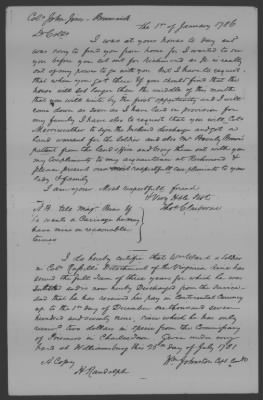 Colo John Jones - Brunswick
the 1st of January 1786
Dr Colo.
I was at your house to day and
was sorry to find you from home for I wanted to see
you before you set out for Richmond as it is really
out of my power to go with you but I have to request
that when you get there If you should find that the
house will set longer than the middle of this month
that you will write by the first opportunity and I will
come down as soon as I have laid in provision for
my family I have also to request that you will
Merriwether to sign the inclosed discharge and get a
land warrant for the soldier and also
patent from the land office and bring them out with you
my compliments to my acquaintances at Richmond &
please present our most respectfull compliments to your
lady & family
I am your Most respectfull friend
& Very Hble Servt
Thos Claiborne
N B tell Majr
he wants a Carriage he may
have one on reasonable
terms
I do hereby certify that Wm a soldier
in Cols Detachment of the Virginia line has
served the full term of three years for which he was
Inlisted and is now hereby Discharged from the Service
and that he has received his pay in Continental Currency
up to the 1st day of December one thousand seven
hundred and seventy nine, since which he has only
two dollars in specie from the Commissary
of Prisoners in Charlestown Given under my
hand at Williamsburg this 25th day of July 1781
A Copy Wm Johnston Capt
H Randolph